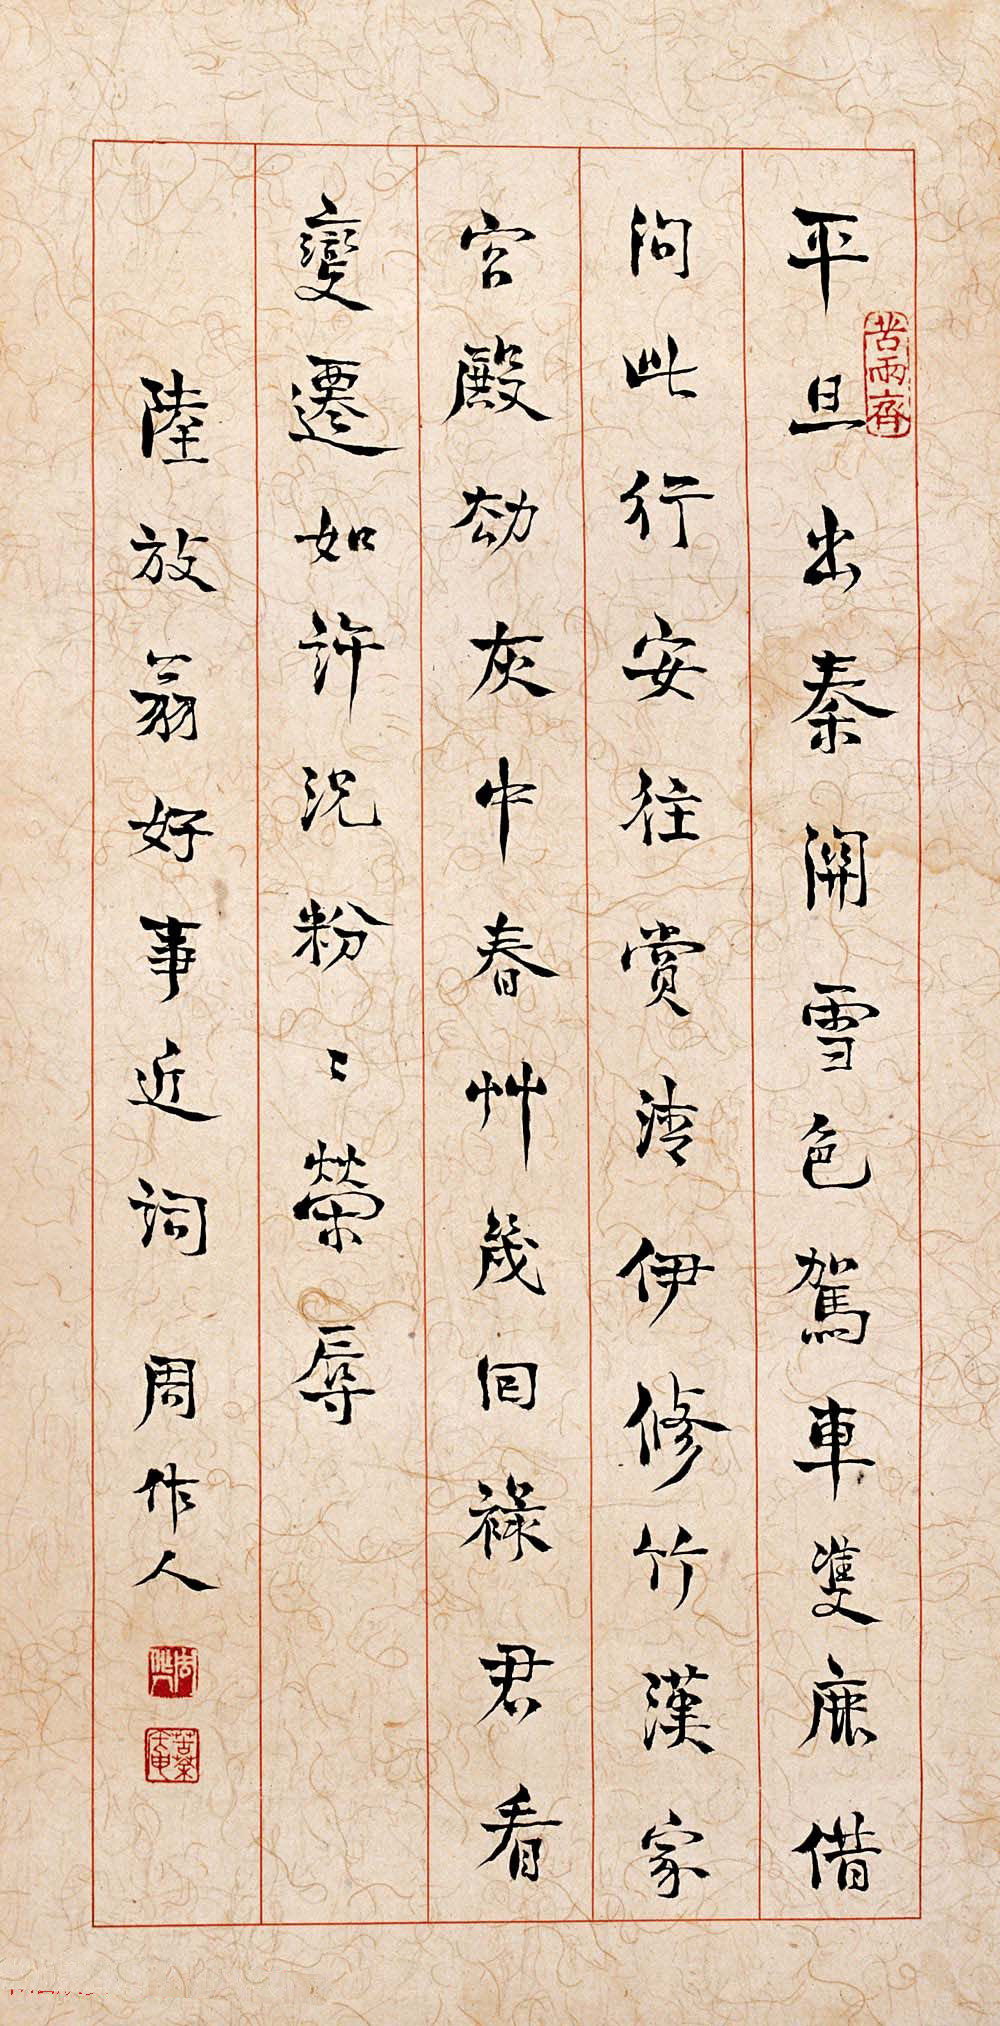 平旦出秦關雪色駕車雙鹿借
問此行安往賞清伊修竹漢家
宮殿劫灰中春艸幾回祿君看
變遷如許況粉〻榮辱
陸放翁好事近詞 周作人
苦雨齋
周作人
苦茶庵